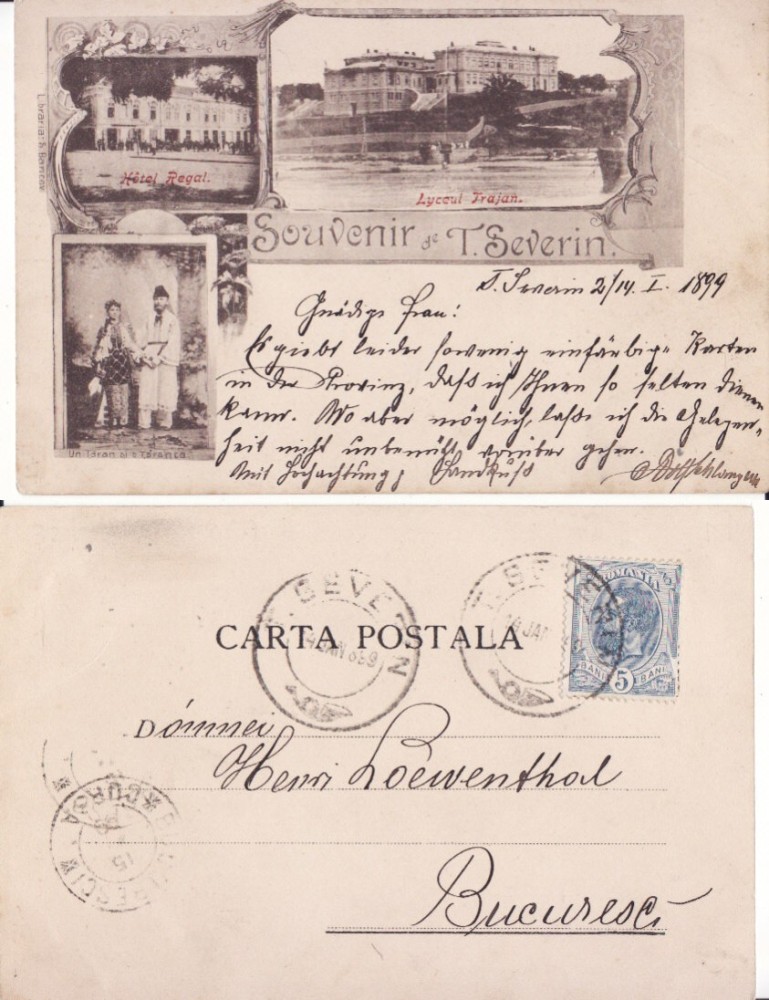 Hôtel Regal.
Lyceul Trajan.
Souvenir de T. Severin.
Un Taran si o Taranca
T. Severin 2/14. I. 1899
Gnädige Frau!
Es giebt leider sowenig einfärbige Karten
in der Provinz, daß ich Ihnen so selten dienen
kann. Wo aber möglich, laße ich die Gelegen„
heit nicht unbenützt vorüber gehen.
Mit Hochachtung, Handkuß
CARTA POSTALA
T. SEVERIN
14 JAN 899
T. SEVERIN
14 JAN
ROMANIA
BANI 5 BANI
Dómnei
Henri Loëwenthal
Bucuresci
BUCURESCI
15